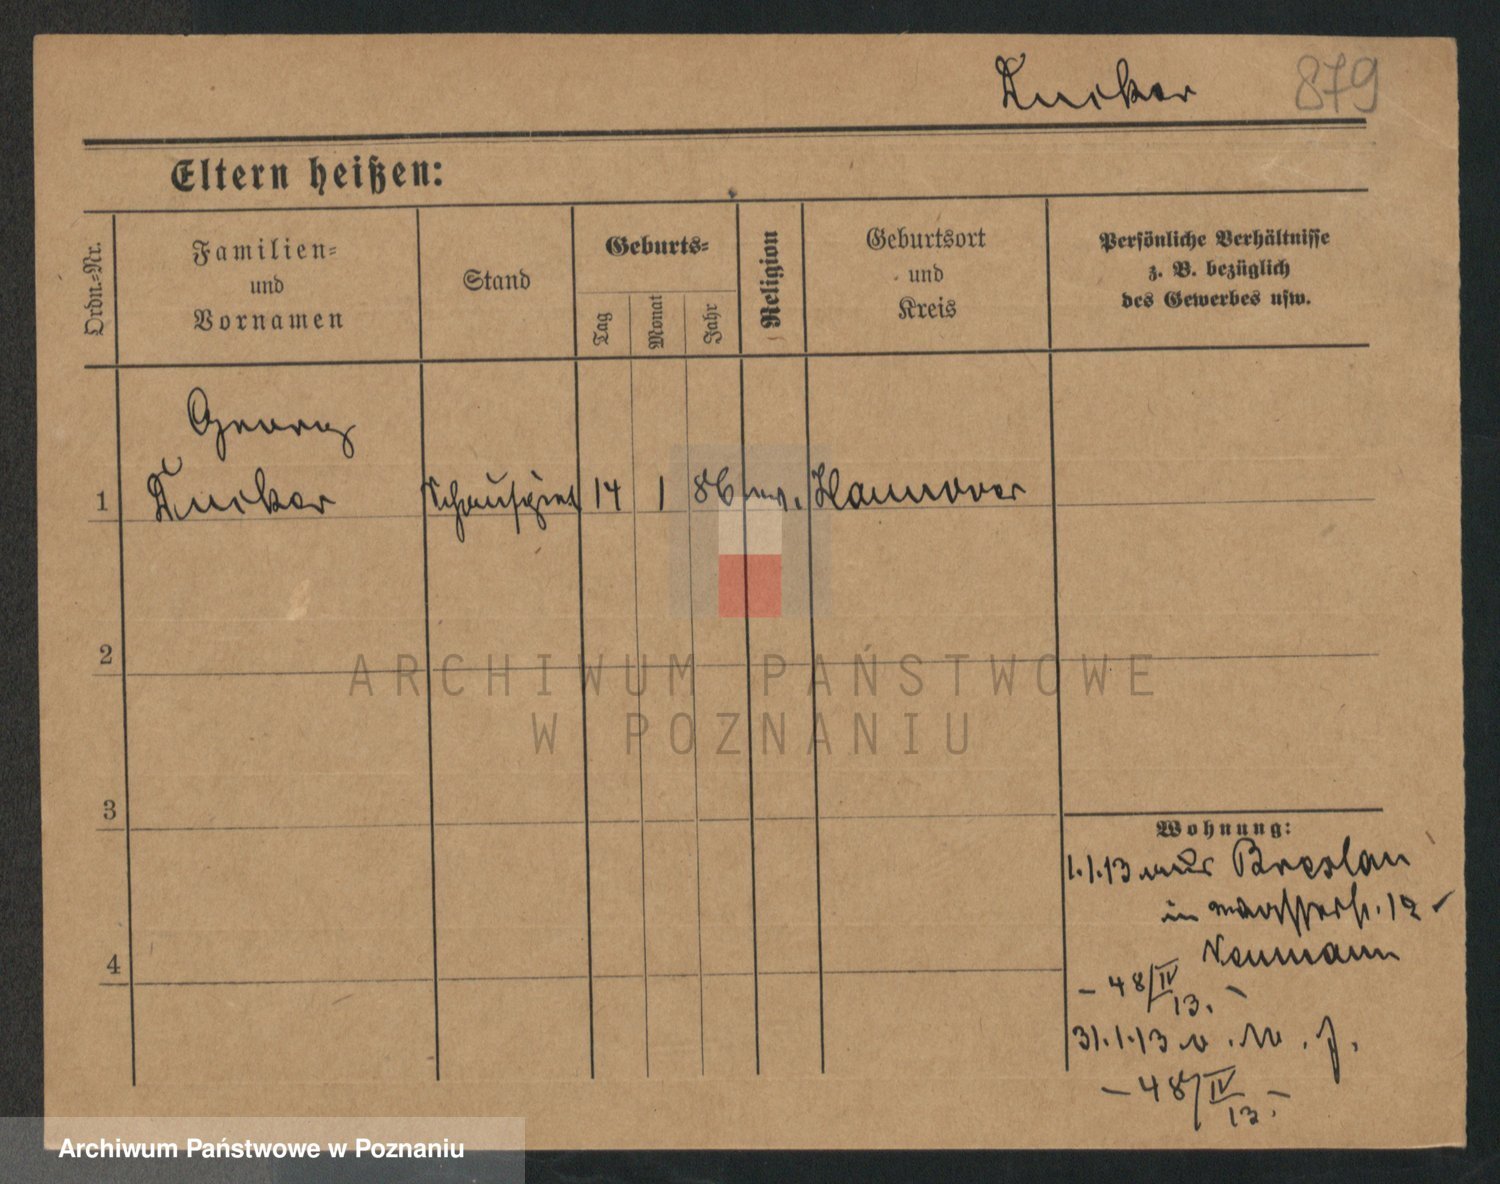 879
Eltern heißen:
Ordn.-Nr.
Familien-
und
Vornamen
Stand
Geburts-
Tag
Monat
Jahr
Religion
Geburtsort
und
Kreis
Persönliche Verhältnisse
z. B. bezüglich
des Gewerbes usw.
Georg
1
14 1 86 Hannover
2
ARCHIWUM PAŃSTWOWE
W POZNANIU
3
Wohnung:
1.1.13 aus Breslau
in 12
4
Neumann
- 48/IV
13. -
31.1.13
- 48/IV
13. -
Archiwum Państwowe w Poznaniu